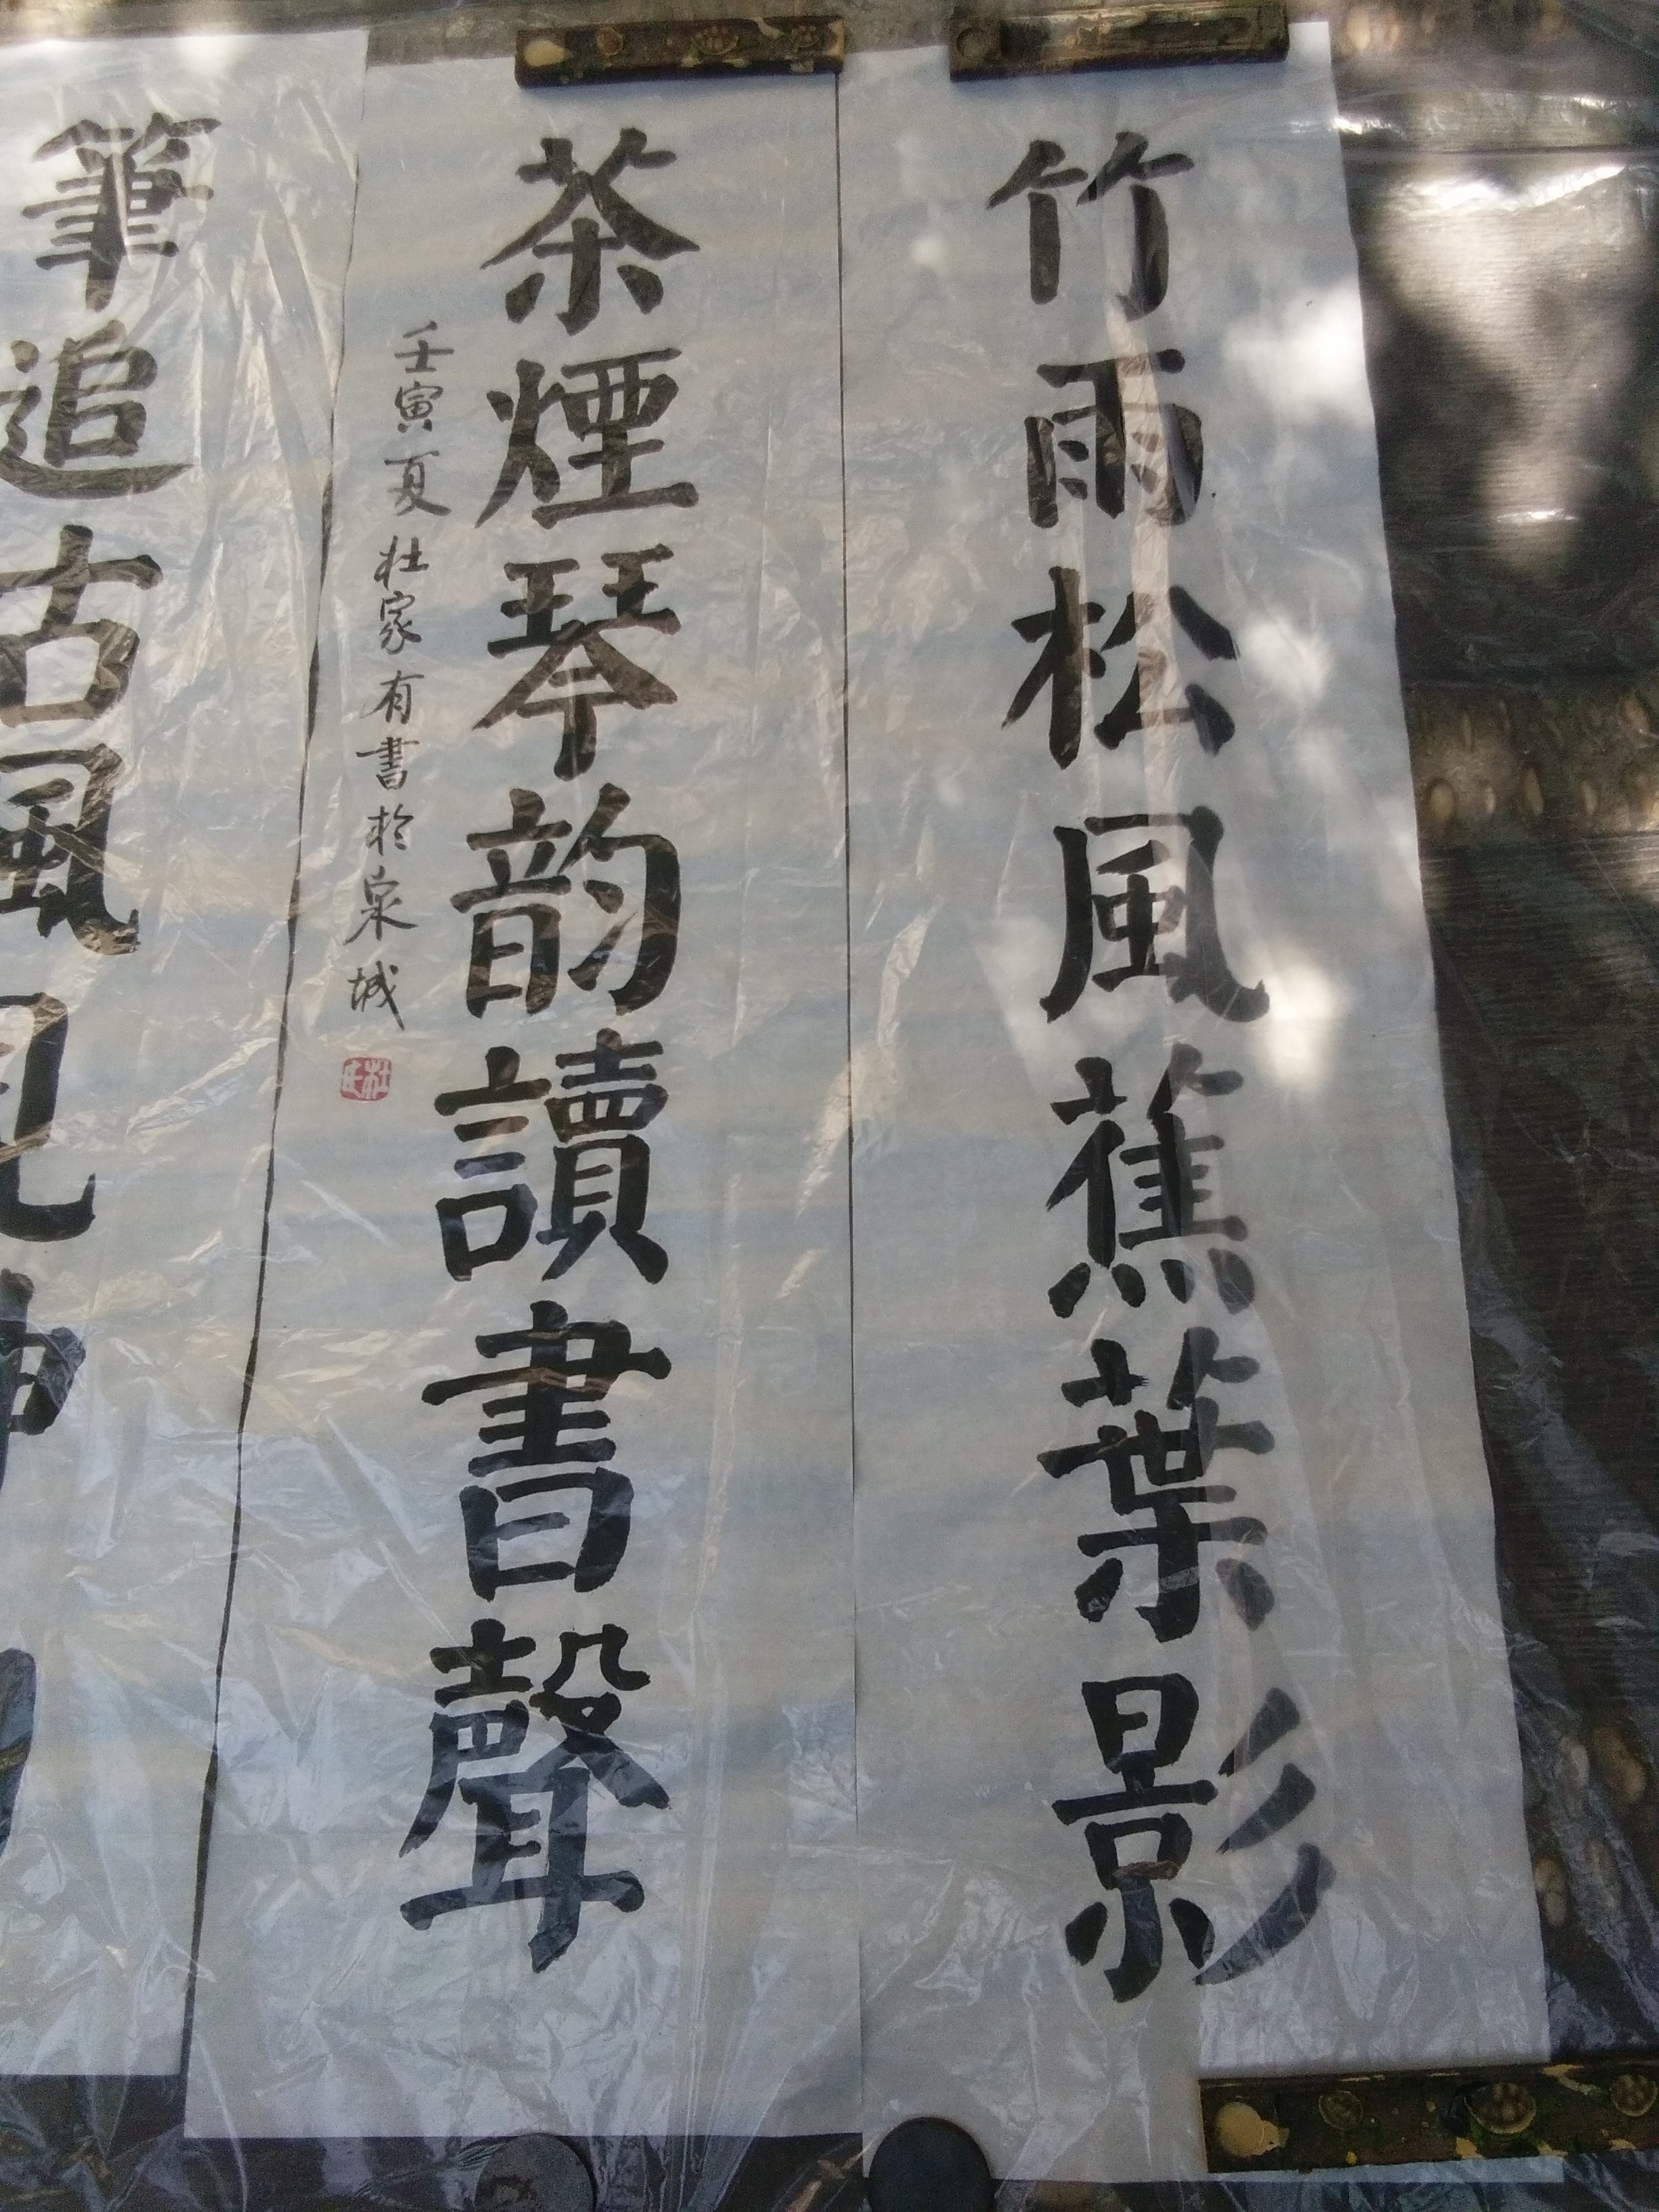 竹雨松風蕉葉影
茶煙琴韵讀書聲
壬寅夏杜家有書於泉城
杜氏
筆追古風見神